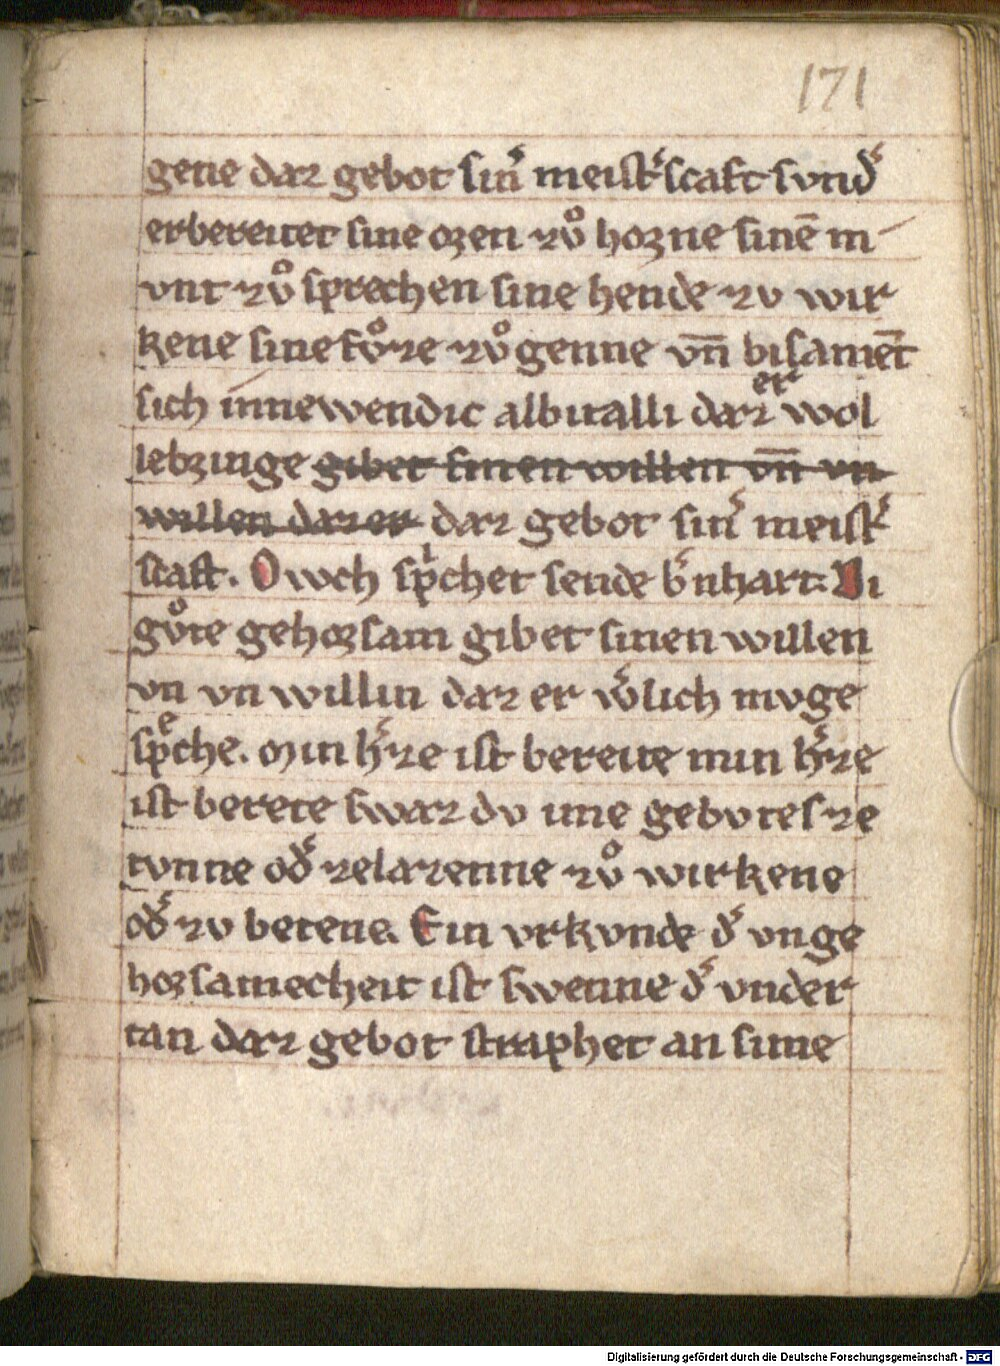 171
gene daz gebot sin͛ meist͛scaft svnd͛
erbereitet sine oren zuͦ horne sinē m
vnt zuͦ sprechen sine hende zv wir
kene sine fuͦze zuͦ genne vn̄ bisamēt
sich innewendic albitalli daz er wol
lebringe gibet sinen willen vn̄ vn
willen daz er daz gebot sin͛ meist͛
scaft. Owch spͥchet sende b͛nhart. Di
guͦte gehorsam gibet sinen willen
vn vn willin daz er w͛lich mvge
spͤche. Min h͛ze ist bereite min h͛ze
ist berete swaz dv ime gebvtes ze
tvnne od͛ zelazenne zuͦ wirkene
od͛ zv betene. Ein vrkvnde d͛ vnge
horsamecheit ist swenne d͛ vnder
tan daz gebot straphet an sime
Digitalisierung gefördert durch die Deutsche Forschungsgemeinschaft - DFG